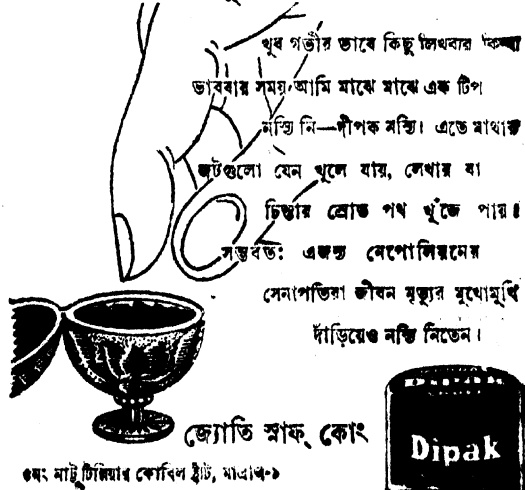 খুব গভীর ভাবে কিছু লিখবার কিম্বা
ভাববার সময় আমি মাঝে মাঝে এক টিপ
নস্যি নি—দীপক নস্যি। এতে মাথার
জটগুলো যেন খুলে যায়, লেখার বা
চিন্তার স্রোত পথ খুঁজে পায়।
সম্ভবত: এজন্য নেপোলিয়নের
সেনাপতিরা জীবন মৃত্যুর মুখোমুখি
দাঁড়িয়েও নস্যি নিতেন।
জ্যোতি স্নাফ্ কোং
Dipak
৩নং নাট্টু পিল্লিয়ার কোবিল ষ্ট্রীট, মাদ্রাজ-১